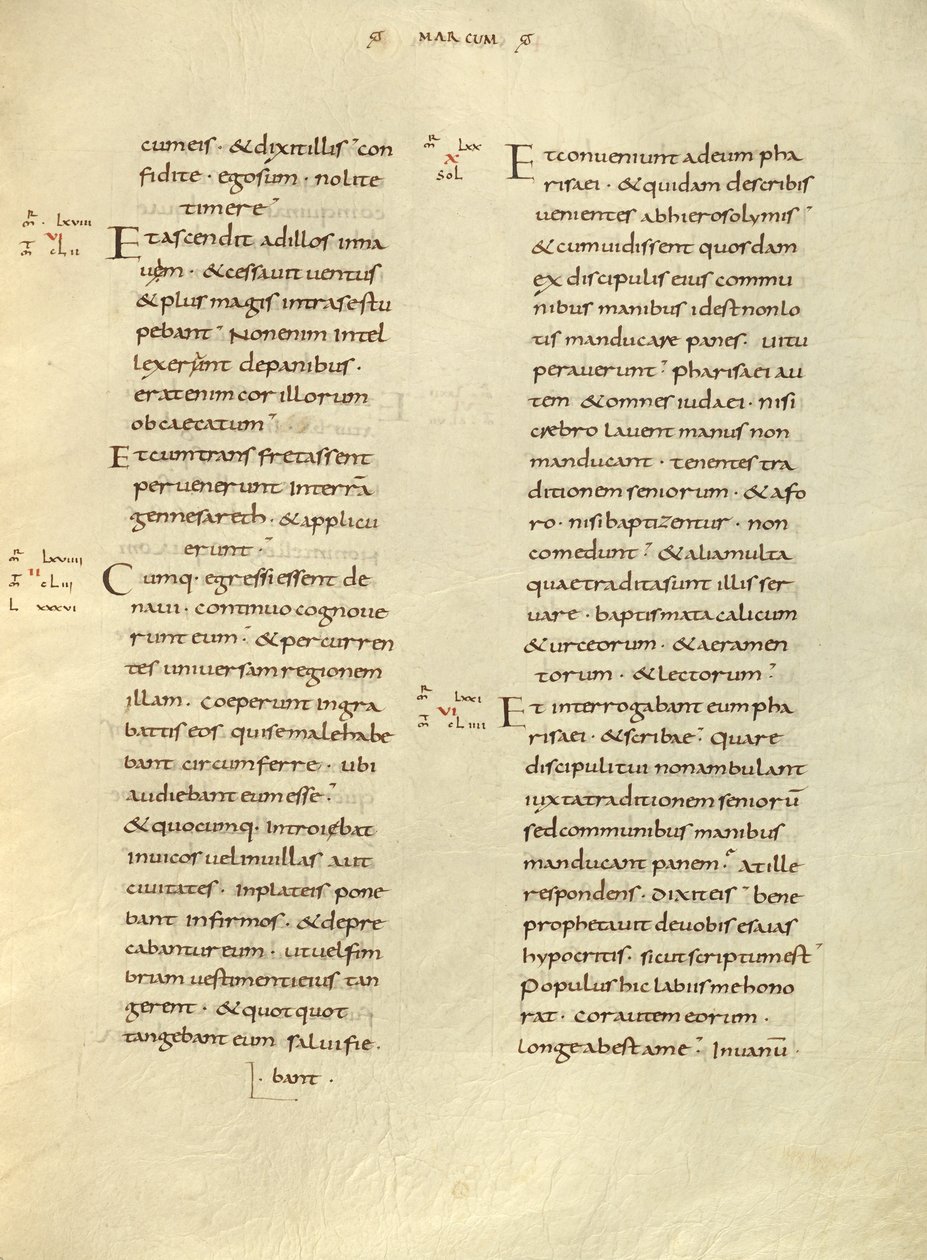 MARCUM
cumeis · &dixitillis con
fidite · egosum · nolite
timere
mr · Lxviii
vi
mt cLii
Etascendit adillos inna
uem · &cessauit uentus
&plus magis intrasestu
pebant Nonenim intel
lexerunt depanibus ·
eratenim cor illorum
obcaecatum
Etcumtrans fretassent
peruenerunt interrā
gennesareth · &applicu
erunt ·
mr Lxviiii
ii
mt cLiii
L xxxvi
Cumq· egressi essent de
naui · continuo cognoue
runt eum · &percurren
tes uniuersam regionem
illam · coeperunt ingra
battis eos quisemalehabe
bant circumferre · ubi
audiebant eum esse ·
&quocumq· introiebat
inuicos uelinuillas aut
ciuitates · inplateis pone
bant infirmos · &depre
cabantur eum · utuelfim
briam uestimentieius tan
gerent · &quotquot
tangebant eum saluifie ·
· bant ·
mr Lxx
x
soL
Etconueniunt adeum pha
risaei · &quidam describis
uenientes abhierosolymis
&cumuidissent quosdam
ex discipulis eius commu
nibus manibus idestnonlo
tis manducare panes · uitu
perauerunt pharisaei au
tem &omnes iudaei · nisi
crebro lauent manus non
manducant · tenentes tra
ditionem seniorum · &afo
ro · nisi baptizentur · non
comedunt &aliamulta
quaetraditasunt illis ser
uare · baptismata calicum
&urceorum · &aeramen
torum · &lectorum
mr Lxxi
vi
mt cLiiii
Et interrogabant eum pha
risaei · &scribae Quare
discipulitui nonambulant
iuxtatraditionem seniorū
sedcommunibus manibus
manducant panem · Atille
respondens · dixiteis bene
prophetauit deuobis esaias
hypocritis · sicutscriptumest
Populus hic labiis me hono
rat · cor autem eorum ·
longe abest ame Inuanū ·